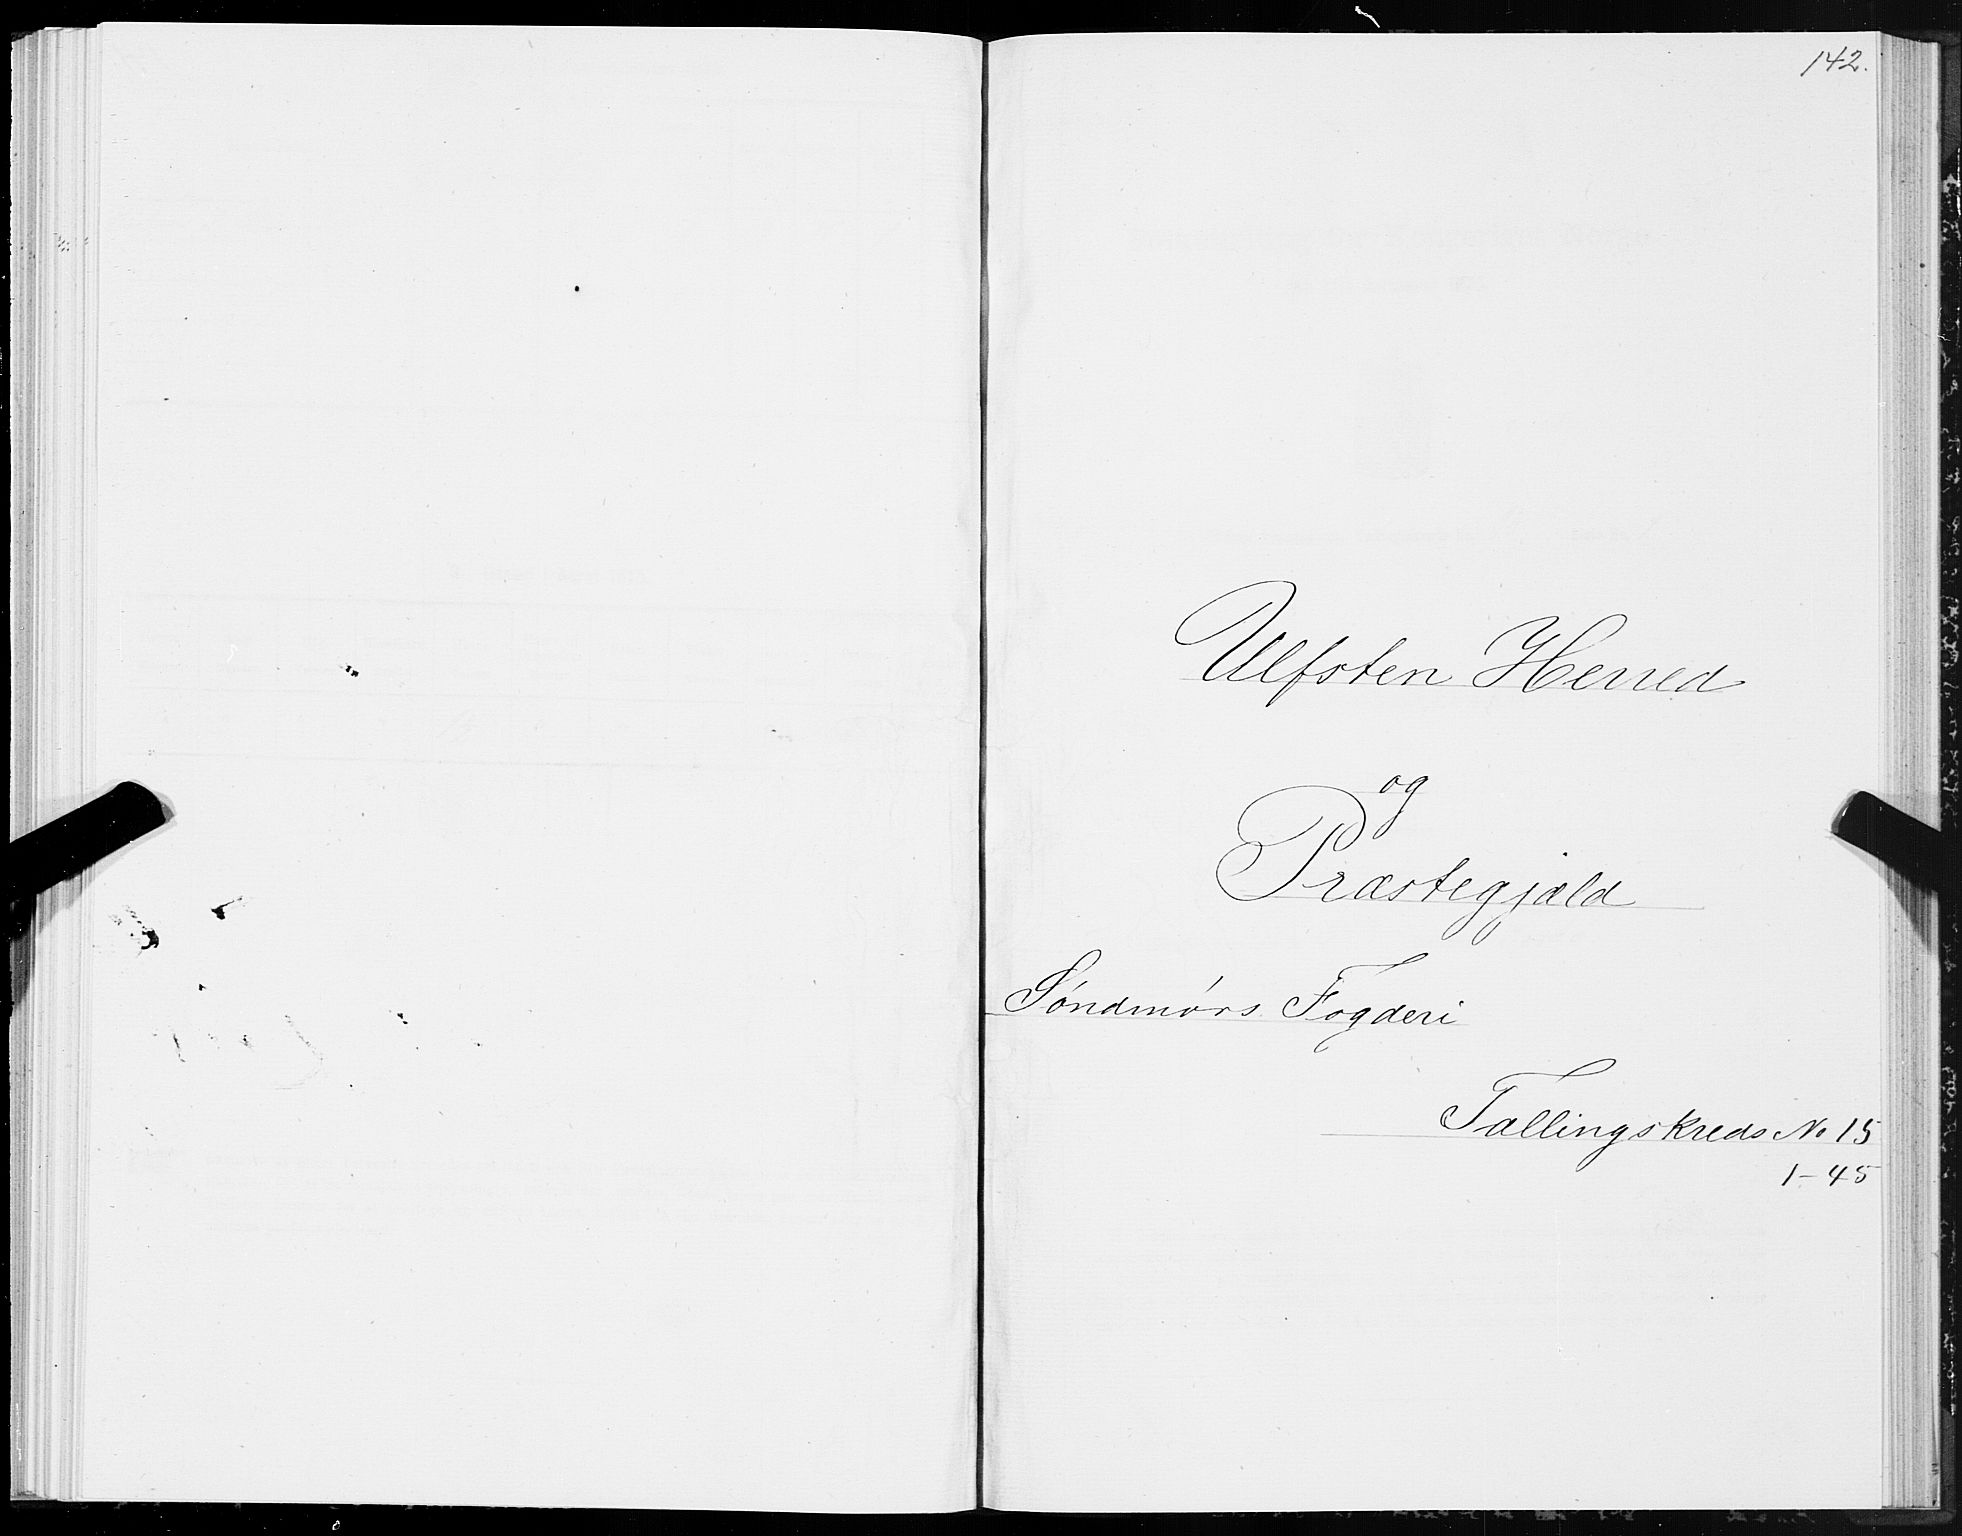 142.
Ulfsten Herred
og
Præstegjæld
Söndmörs Fogderi
Tællingskreds No 15
1-45